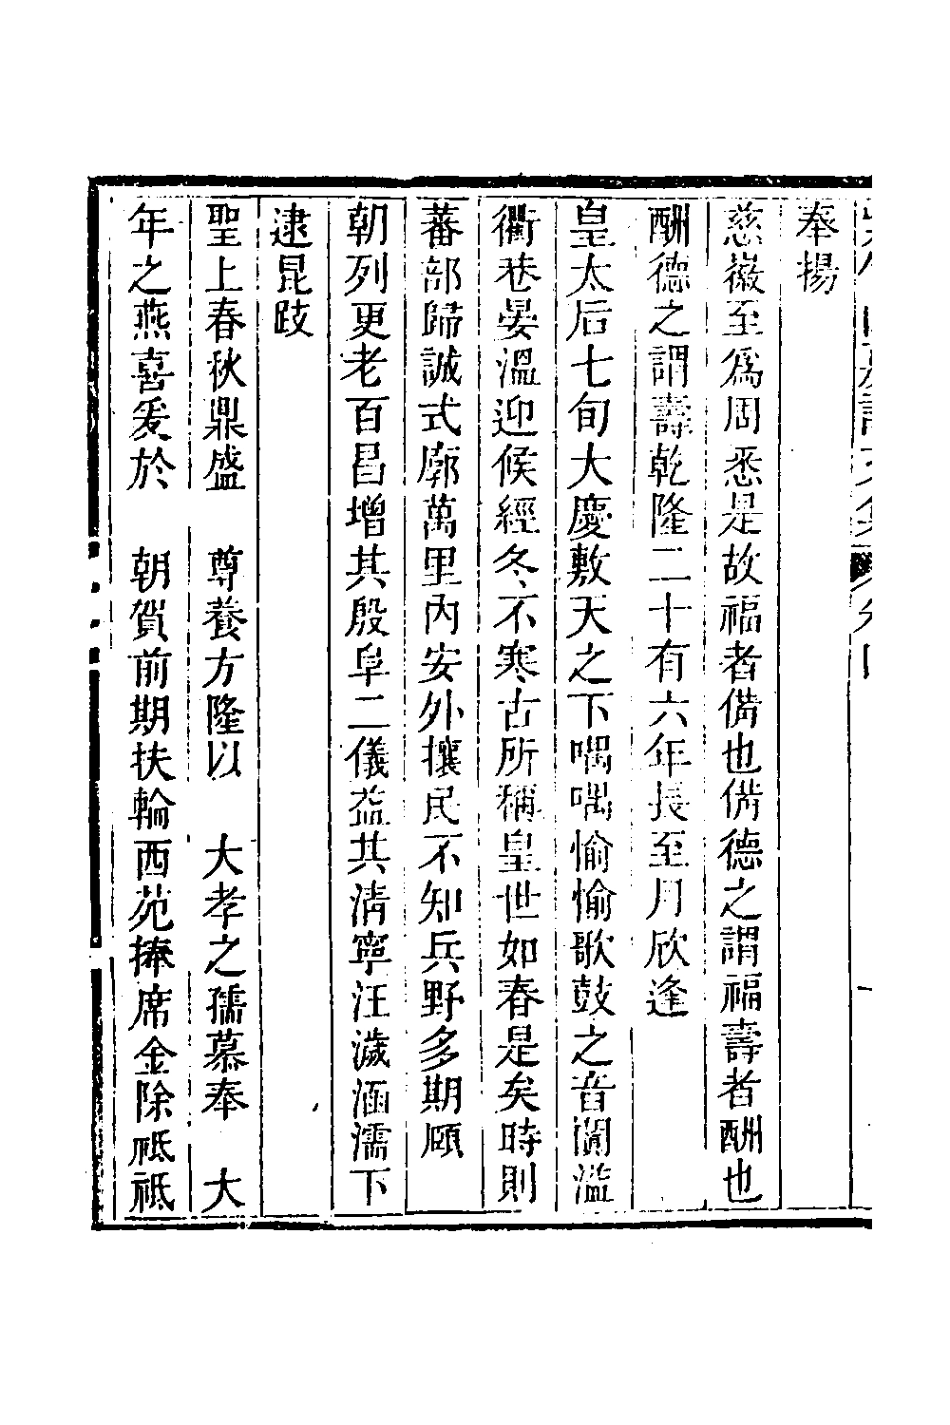 奉揚
慈徽至爲周悉是故福者備也備德之謂福壽者酬也
酬德之謂壽乾隆二十有六年長至月欣逢
皇太后七旬大慶敷天之下喁喁愉愉歌鼓之音闐溢
衢巷晏溫迎候經冬不寒古所稱皇世如春是矣時則
蕃部歸誠式廓萬里內安外攘民不知兵野多期頤
朝列更老百昌增其殷阜二儀益其清寧汪濊涵濡下
逮昆跂
聖上春秋鼎盛　尊養方隆以　大孝之孺慕奉　大
年之燕喜爰於　朝賀前期扶輪西苑捧席金除祗祗